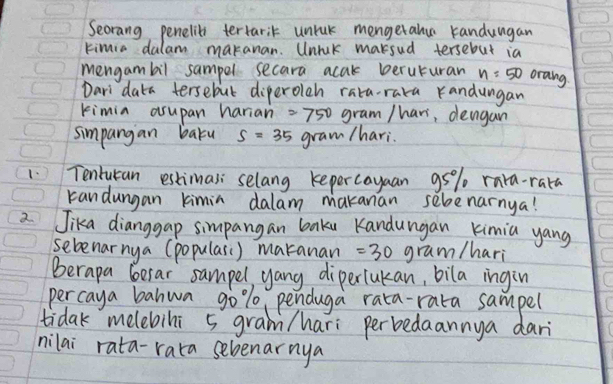 Seorang peneliti tertarik untuk mengetahui kandungan
kimia dalam makanan. Untuk maksud tersebut ia
mengambil sampel secara acak berukuran n = 50 orang.
Dari data tersebut diperoleh rata-rata kandungan
kimia asupan harian = 750 gram/hari, dengan
simpangan baku s = 35 gram/hari.
1. Tentukan estimasi selang kepercayaan 95% rata-rata
kandungan kimia dalam makanan sebenarnya!
2. Jika dianggap simpangan baku kandungan kimia yang
sebenarnya (populasi) makanan = 30 gram/hari
Berapa besar sampel yang diperlukan, bila ingin
percaya bahwa 90% penduga rata-rata sampel
tidak melebihi 5 gram/hari perbedaannya dari
nilai rata-rata sebenarnya